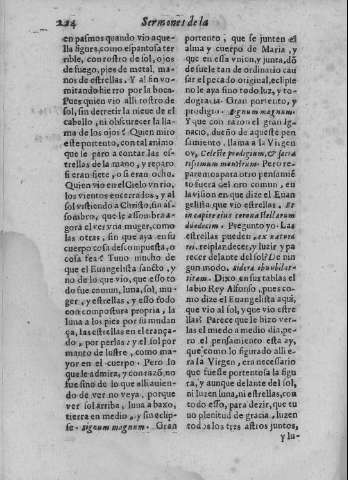 224 Sermones de la
en pasmos quando vio aque-
lla figura, como espantosa ter
rible, con rostro de sol, ojos
de fuego, pies de metal, ma-
nos de estrellas. Y al fin vo-
mitando hierro por la boca.
Pues quien vio alli rostro de
sol, sin derretir la nieue de el
cabello, ni obscurecer la lla
ma de los ojos? Quien miro
este portento, con tal animo
que le paro a contar las es-
trellas de la mano, y reparo
si eran siete, o si eran ocho.
Quien vio en el Cielo vn rio,
los vientos encerrados, y al
sol vistiendo a Christo, sin as
sombro, que le assombra a-
gora el ver vna muger, como
las otras, sin que aya en su
cuerpo cosa descompuesta, o
cosa fea? Tuuo mucho de
que el Euangelista sancto, y
no de lo que vio, que esso to
do fue comun, luna, sol, mu-
ger, y estrellas, y esso todo
con compostura propria, la
luna a los pies por su mudan
ça, las estrellas en el trança-
do, por perlas: y el sol por
manto de lustre, como ma-
yor en el cuerpo. Pero lo
que le admira, y con razō, no
fue sino de lo que alli auien-
do de ver no veya, porque
ver sol arriba, luna abaxo,
tierra en medio, y sin eclip-
se. signum magnum. Gran
portento, que se junten el
alma y cuerpo de Maria, y
que en essa vnion, y junta, dō
de suele tan de ordinario cau
sar el pecado original, eclipse
no le aya sino todo luz, y to-
do gracia. Gran portento, y
prodigio. signum magnum.
Y que con razon el gran Ig-
nacio, dueño de aqueste pen
samiento, llama a la Virgen
ov, Celeste prodigium, & sacra
tissimum monstrum. Pero te-
parento para otro pensamiē
to fuera del oro comun, en
la vision en que dize el Euan
gelista que vio estrellas. Et
in capite eius corona stellarum
duodecim. Pregunto yo. Las
estrellas pueden, ex natura
rei, resplandecer, y luzir y pa
recer delante del sol? De nin
gun modo,
Dixo en sus tablas el
sabio Rey Alfonso, pues co-
mo dize el Euangelista aqui,
que vio al sol, y que vio estre
llas? Parece que le hizo ver-
las el miedo a medio dia, pe-
ro el pensamiento esta ay,
que como lo figurado alli e-
ra la Virgen, era necessario
que fuesse portentosa la figu
ra, y aunque delante del sol,
ni luzen luna, ni estrellas, con
todo esso, para dezir, que tu
uo plenitud de gracia, luzen
todos los tres astros juntos,
y lu-